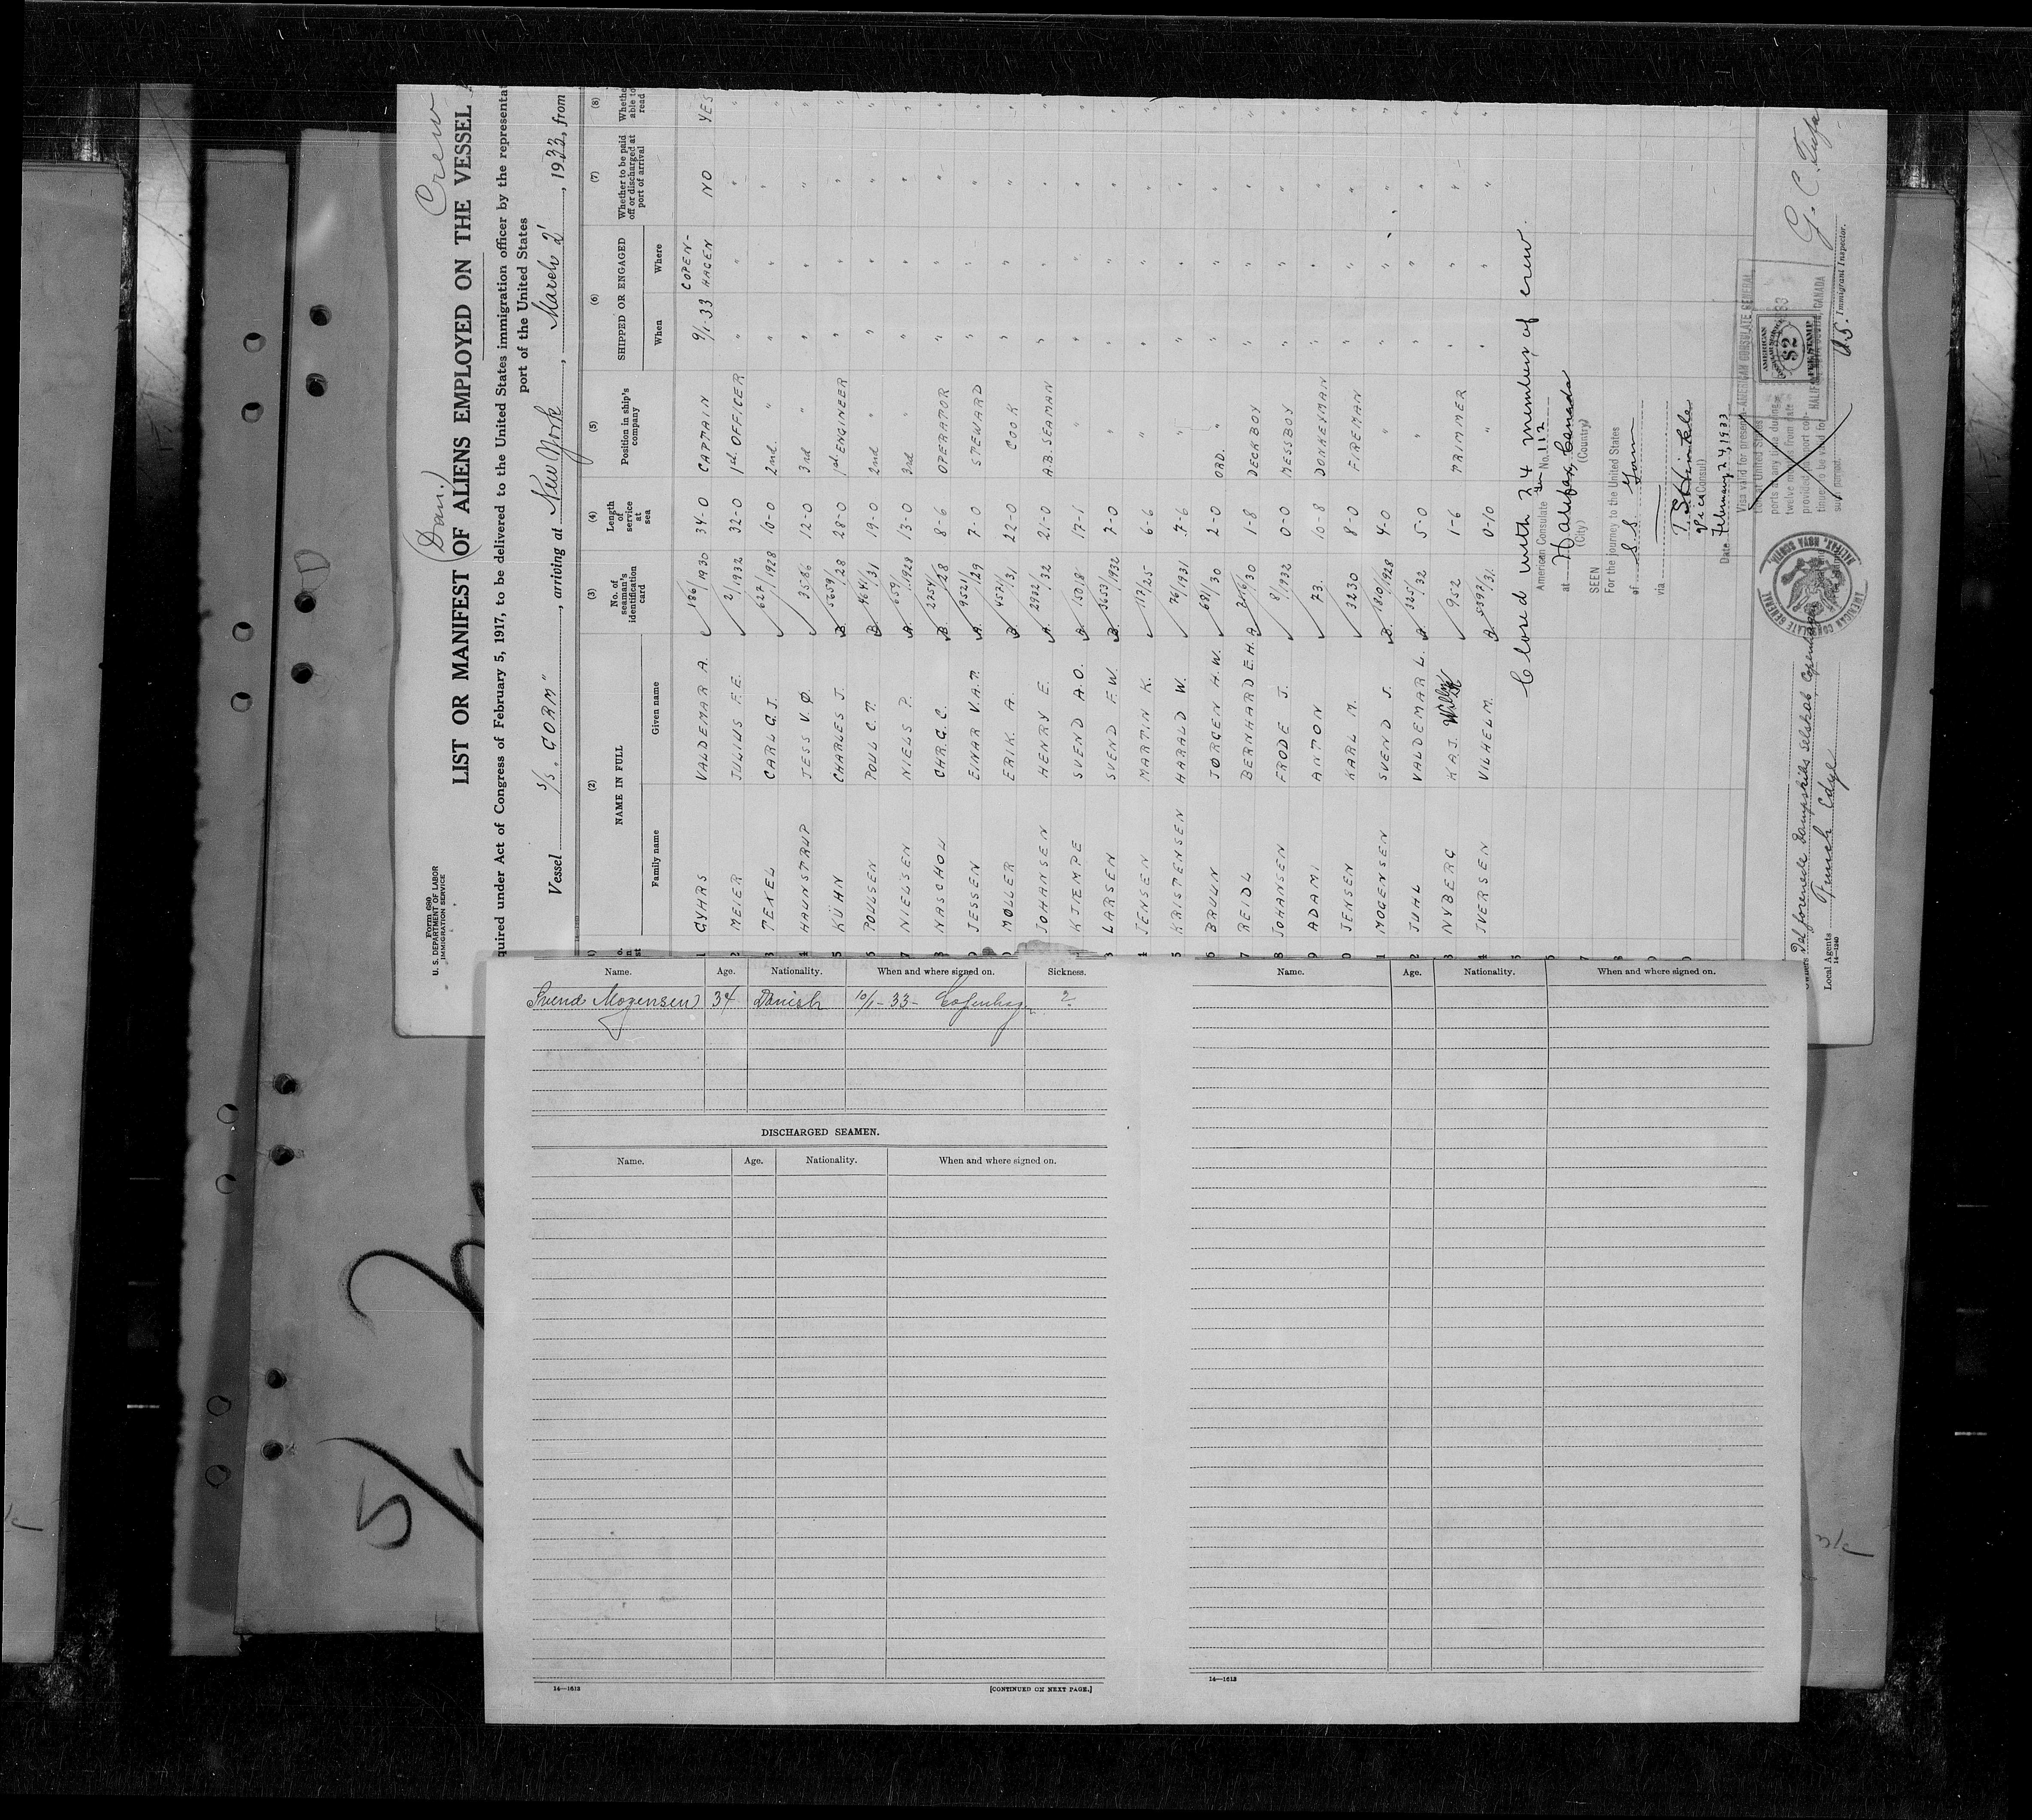 Crew
(Dan.)
Form 680
U. S. DEPARTMENT OF LABOR
IMMIGRATION SERVICE
LIST OR MANIFEST OF ALIENS EMPLOYED ON THE VESSEL
quired under Act of Congress of February 5, 1917, to be delivered to the United States immigration officer by the representa
port of the United States
Vessel S/S. "GORM", arriving at New York, March 2', 1933, from
(2) (3) (4) (5) (6) (7) (8)
NAME IN FULL
Family name Given name
No. of seaman's identification card
Length of service at sea
Position in ship's company
SHIPPED OR ENGAGED
When Where
Whether to be paid off or discharged at port of arrival
Whether able to read
1 GYHRS VALDEMAR A. 186/1930 34-0 CAPTAIN 9/1-33 COPEN-HAGEN NO YES
2 MEIER JULIUS F.E. 2/1932 32-0 1st OFFICER " " " "
3 TEXEL CARL G.J. 627/1928 10-0 2nd. " " " " "
4 HAUNSTRUP JESS V.Ø. 3586 12-0 3rd " " " " "
5 KÜHN CHARLES J. B. 5659/28 28-0 1st ENGINEER " " " "
6 POULSEN POUL C.T. B. 4641/31 19-0 2nd " " " " "
7 NIELSEN NIELS P. A. 659/1928 13-0 3rd " " " " "
8 NASCHOU CHR.G.C. B. 2754/28 8-6 OPERATOR " " " "
9 JESSEN EINAR V.A.T. A. 9521/29 7-0 STEWARD " " " "
0 MØLLER ERIK. A. B. 4571/31 22-0 COOK " " " "
JOHANSEN HENRY E. A. 2932/32 21-0 A.B. SEAMAN " " " "
KJEMPE SVEND A.O. B. 15018 17-1 " " " " "
3 LARSEN SVEND F.W. B. 3653/1932 7-0 " " " " "
4 JENSEN MARTIN K. 117/25 6-6 " " " " "
5 KRISTENSEN HARALD W. 76/1931 7-6 " " " " "
6 BRUUN JÖRGEN H.W. 69/30 2-0 ORD. " " " " "
7 REIDL BERNHARD E.H. A 30 1-8 DECKBOY " " " "
8 JOHANSEN FRODE J. 8/1932 0-0 MESSBOY " " " "
9 ADAMI ANTON 73. 10-8 DONKEYMAN " " " "
0 JENSEN KARL M. 3230 8-0 FIREMAN " " " "
1 MOGENSEN SVEND J. B. 1810/1928 4-0 " " " " "
2 JUHL VALDEMAR L. A. 325/32 5-0 " " " " "
3 NYBERG K.A.J. Willy 952 1-6 TRIMMER " " " "
4 IVERSEN VILHELM. A 5397/31. 0-10 " " " " "
Closed with 24 members of crew.
American Consulate Gen No. 112
at Halifax, Canada
(City) (Country)
SEEN
For the journey to the United States
of S.S. Gorm
via
Vice Consul
Date February 24, 1933
AMERICAN CONSULATE GENERAL
HALIFAX, NOVA SCOTIA, CANADA
AMERICAN
$2
FEE STAMP
AMERICAN CONSULATE GENERAL
HALIFAX, NOVA SCOTIA
Owners Det forenede Dampskibs Selskab Copenhagen
Local Agents Funch Edye
14—1240
U.S. Immigrant Inspector.
Name. Age. Nationality. When and where signed on. Sickness.
Svend Mogensen 34 Danish 10/1-33- Copenhagen ?
DISCHARGED SEAMEN.
Name. Age. Nationality. When and where signed on.
14—1613
[CONTINUED ON NEXT PAGE.]
Name. Age. Nationality. When and where signed on.
14—1613